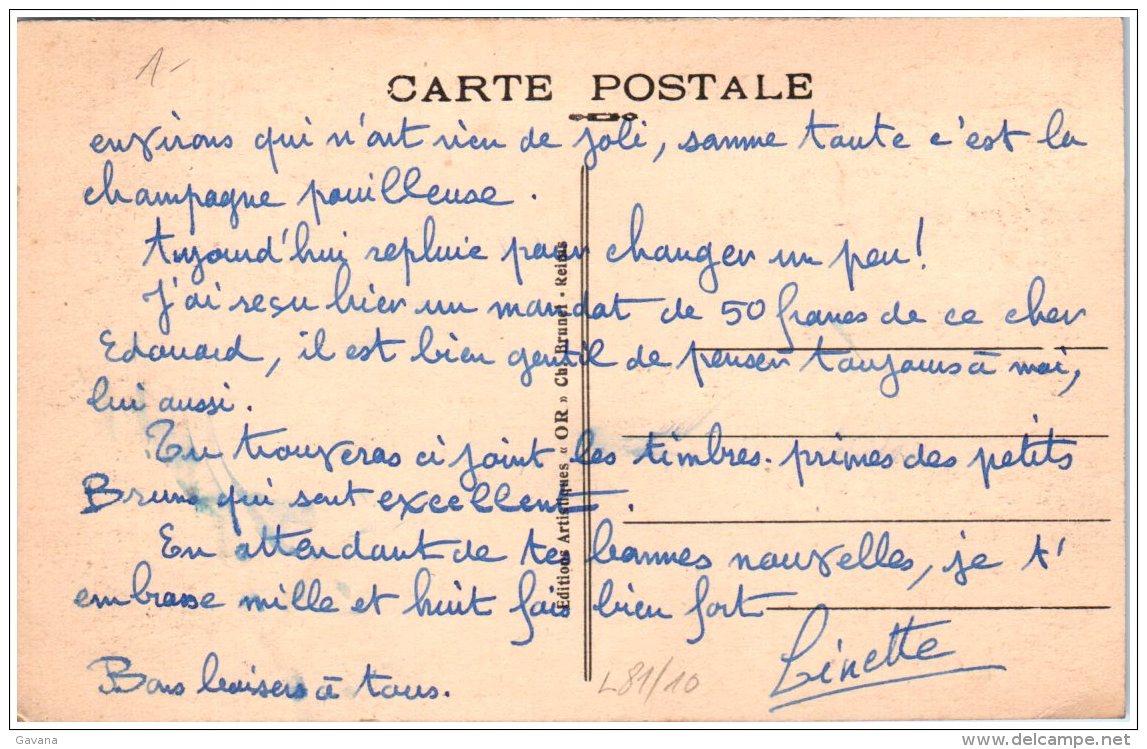 1-
CARTE POSTALE
environs qui n'ont rien de joli, somme toute c'est la
champagne pouilleuse.
Aujourd'hui repluie pour changer un peu!
J'ai reçu hier un mandat de 50 francs de ce cher
Edouard, il est bien gentil de penser toujours à moi,
lui aussi.
Tu trouveras ci joint les timbres-primes des petits
Bruns qui sont excellents.
En attendant de tes bonnes nouvelles, je t'
embrasse mille et huit fois bien fort
Linette
Bons baisers à tous.
Editions Artistiques « OR » Ch. Brunel - Reims
L81/10
Gavana
www.delcampe.net